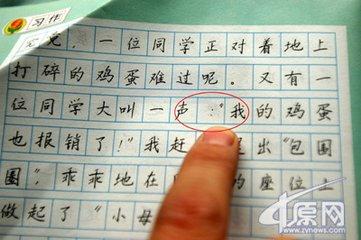 习作
一位同学正对着地上
打碎的鸡蛋难过呢。又有一
位同学大叫一声:"我的鸡蛋
也报销了!"我赶出"包围
圈",乖乖地在的座位上
做起了"小母
中原网
www.zynews.com